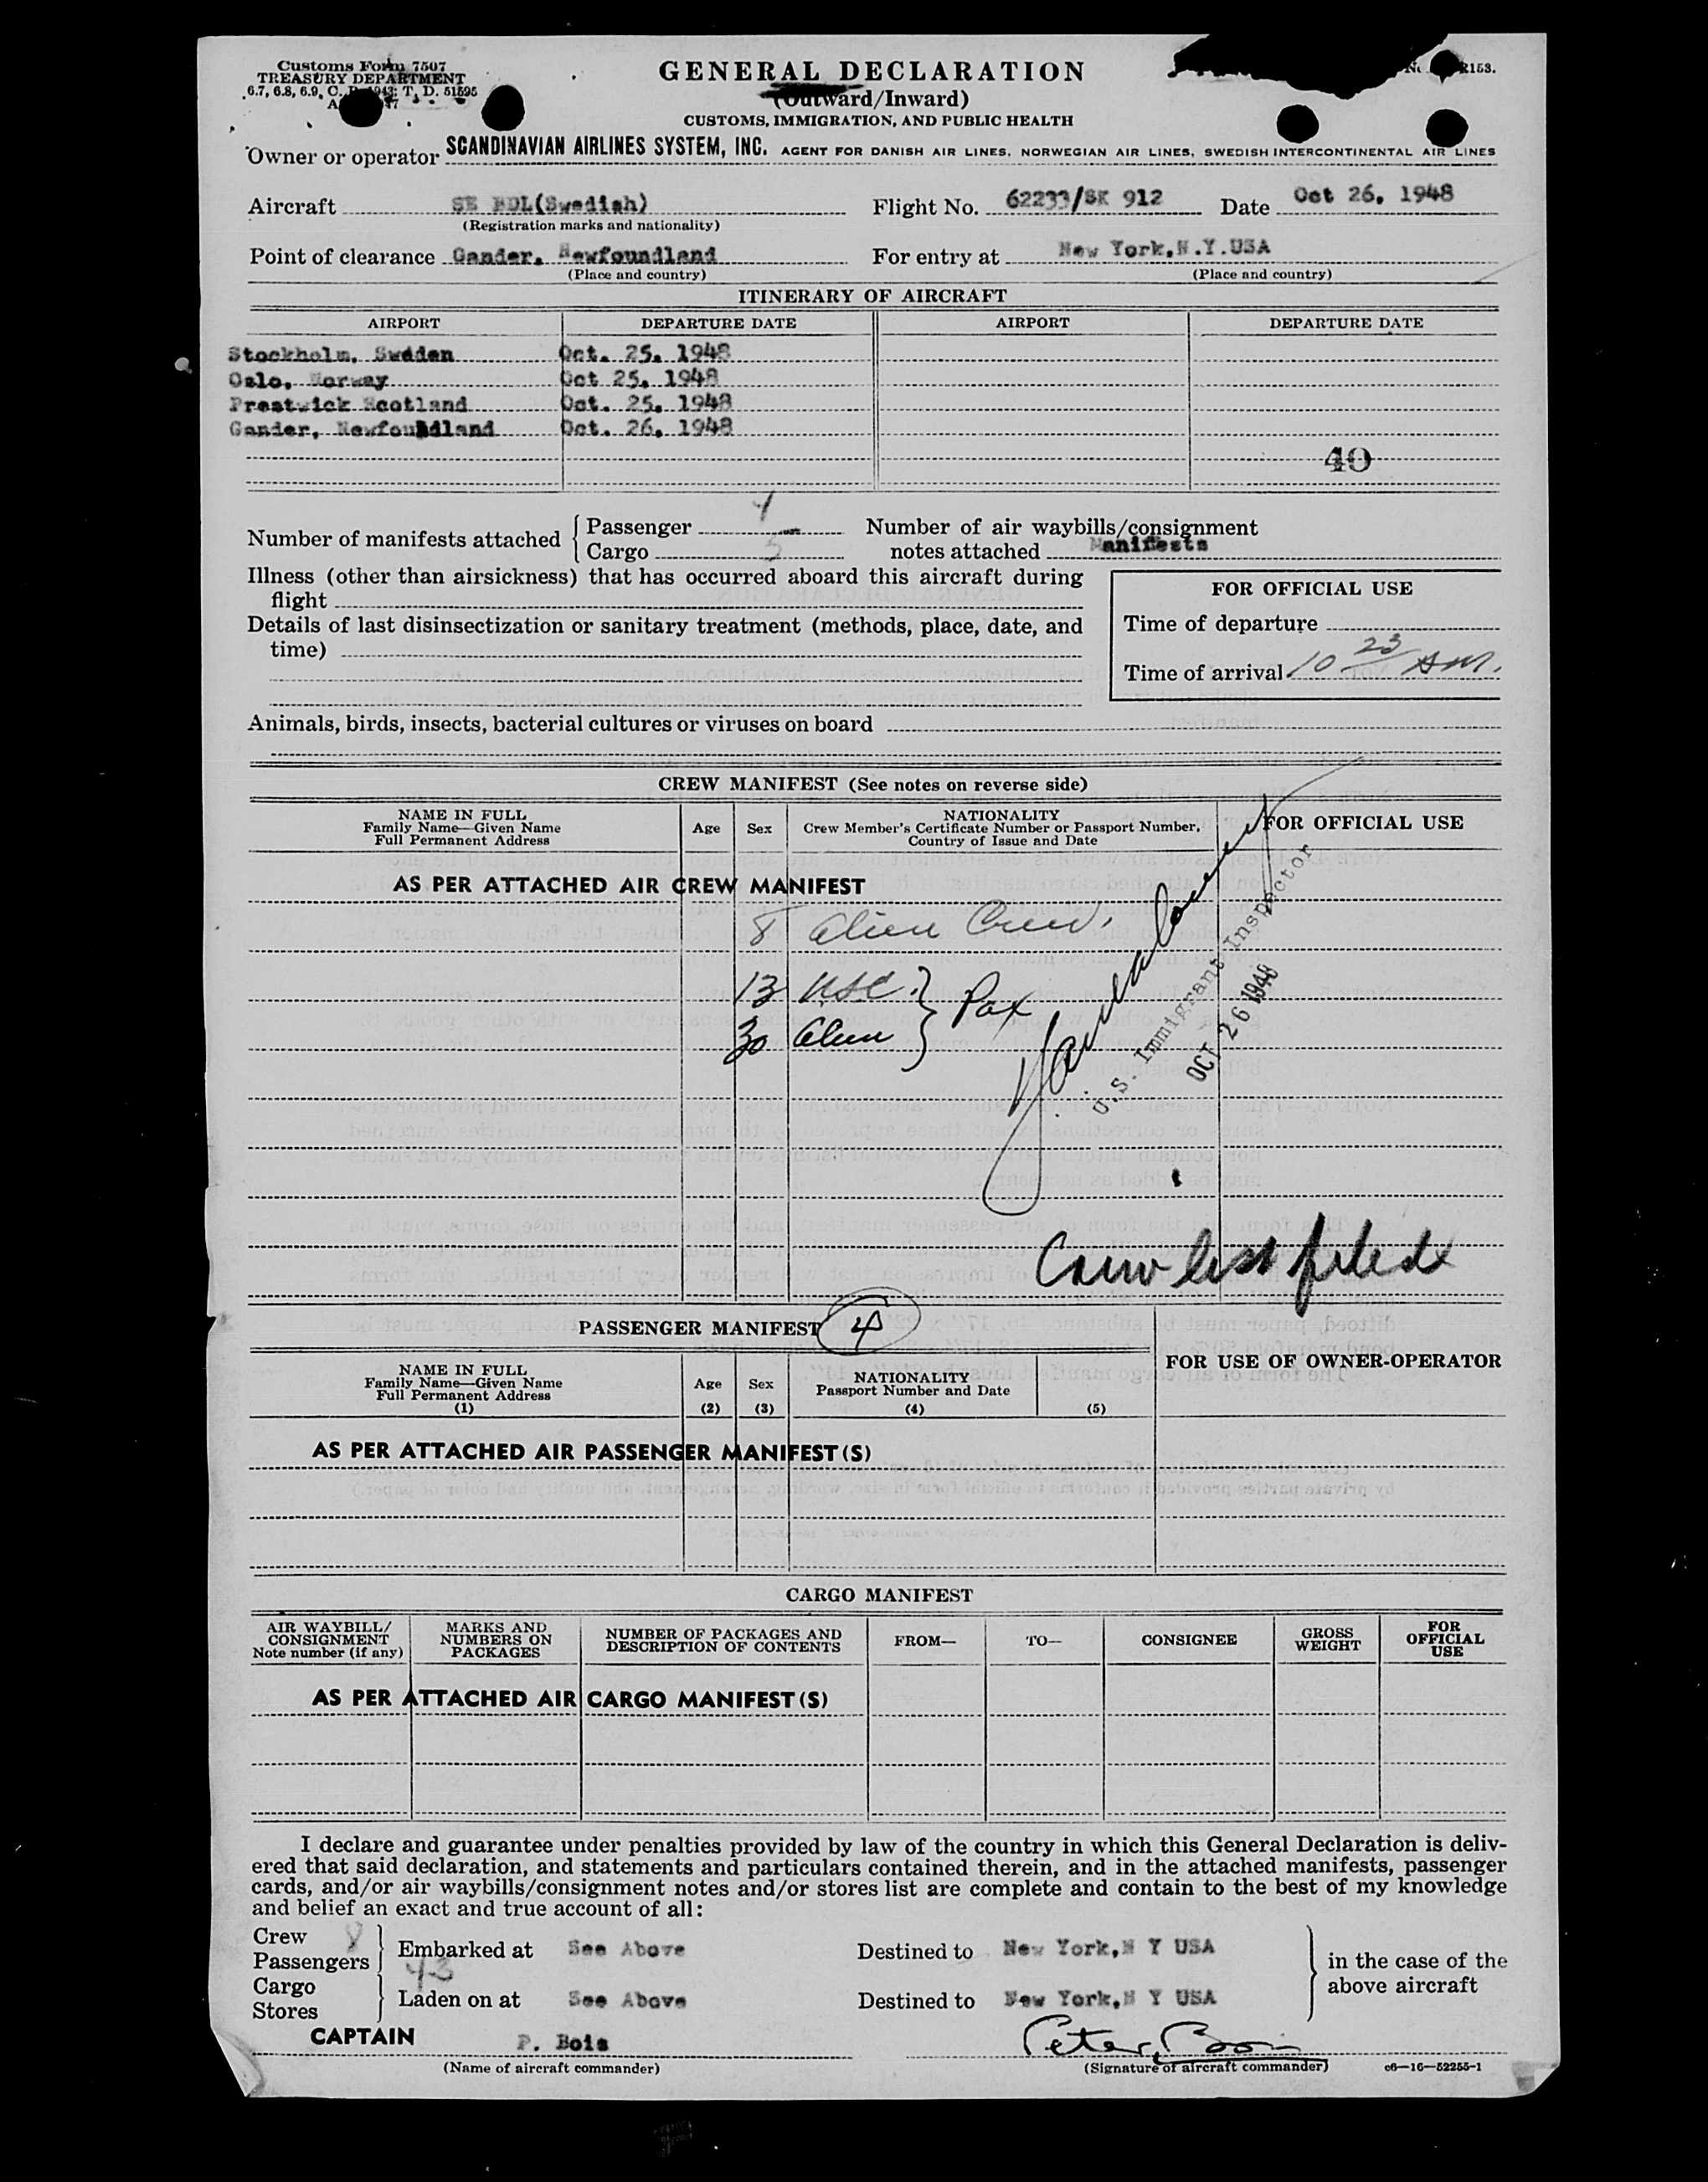 Customs Form 7507
TREASURY DEPARTMENT
6.7, 6.8, 6.9, C. 1943; T. D. 51595
GENERAL DECLARATION
(Outward/Inward)
CUSTOMS, IMMIGRATION, AND PUBLIC HEALTH
Owner or operator SCANDINAVIAN AIRLINES SYSTEM, INC. AGENT FOR DANISH AIR LINES, NORWEGIAN AIR LINES, SWEDISH INTERCONTINENTAL AIR LINES
Aircraft SE BDL(Swedish) Flight No. 62233/SK 912 Date Oct 26, 1948
(Registration marks and nationality)
Point of clearance Gander, Newfoundland For entry at New York,N.Y.USA
(Place and country) (Place and country)
ITINERARY OF AIRCRAFT
AIRPORT DEPARTURE DATE AIRPORT DEPARTURE DATE
Stockholm, Sweden Oct. 25, 1948
Oslo, Norway Oct 25, 1948
Prestwick Scotland Oct. 25, 1948
Gander, Newfoundland Oct. 26, 1948
40
Number of manifests attached { Passenger 4 Number of air waybills/consignment
Cargo 3 notes attached Manifests
Illness (other than airsickness) that has occurred aboard this aircraft during
flight
FOR OFFICIAL USE
Details of last disinsectization or sanitary treatment (methods, place, date, and
time)
Time of departure
Time of arrival 10 23 AM.
Animals, birds, insects, bacterial cultures or viruses on board
CREW MANIFEST (See notes on reverse side)
NAME IN FULL
Family Name—Given Name
Full Permanent Address
Age
Sex
NATIONALITY
Crew Member's Certificate Number or Passport Number,
Country of Issue and Date
FOR OFFICIAL USE
AS PER ATTACHED AIR CREW MANIFEST
8 Alien Crew.
13 USC.
30 Alien } Pax
U.S. Immigrant Inspector
OCT 26 1948
Crew list filed
PASSENGER MANIFEST 4
NAME IN FULL
Family Name—Given Name
Full Permanent Address
(1)
Age
(2)
Sex
(3)
NATIONALITY
Passport Number and Date
(4)
(5)
FOR USE OF OWNER-OPERATOR
AS PER ATTACHED AIR PASSENGER MANIFEST(S)
CARGO MANIFEST
AIR WAYBILL/
CONSIGNMENT
Note number (if any)
MARKS AND
NUMBERS ON
PACKAGES
NUMBER OF PACKAGES AND
DESCRIPTION OF CONTENTS
FROM—
TO—
CONSIGNEE
GROSS
WEIGHT
FOR
OFFICIAL
USE
AS PER ATTACHED AIR CARGO MANIFEST(S)
I declare and guarantee under penalties provided by law of the country in which this General Declaration is deliv-
ered that said declaration, and statements and particulars contained therein, and in the attached manifests, passenger
cards, and/or air waybills/consignment notes and/or stores list are complete and contain to the best of my knowledge
and belief an exact and true account of all:
Crew 8
Passengers 43
Embarked at See Above Destined to New York,N Y USA
in the case of the
above aircraft
Cargo
Stores
Laden on at See Above Destined to New York,N Y USA
CAPTAIN P. Bois Peter Bois
(Name of aircraft commander) (Signature of aircraft commander) c6—16—52255-1